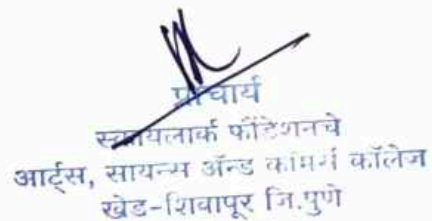 प्राचार्य
स्कायलार्क फौंडेशनचे
आर्टस, सायन्स ॲन्ड कॉमर्स कॉलेज
खेड-शिवापूर जि.पुणे